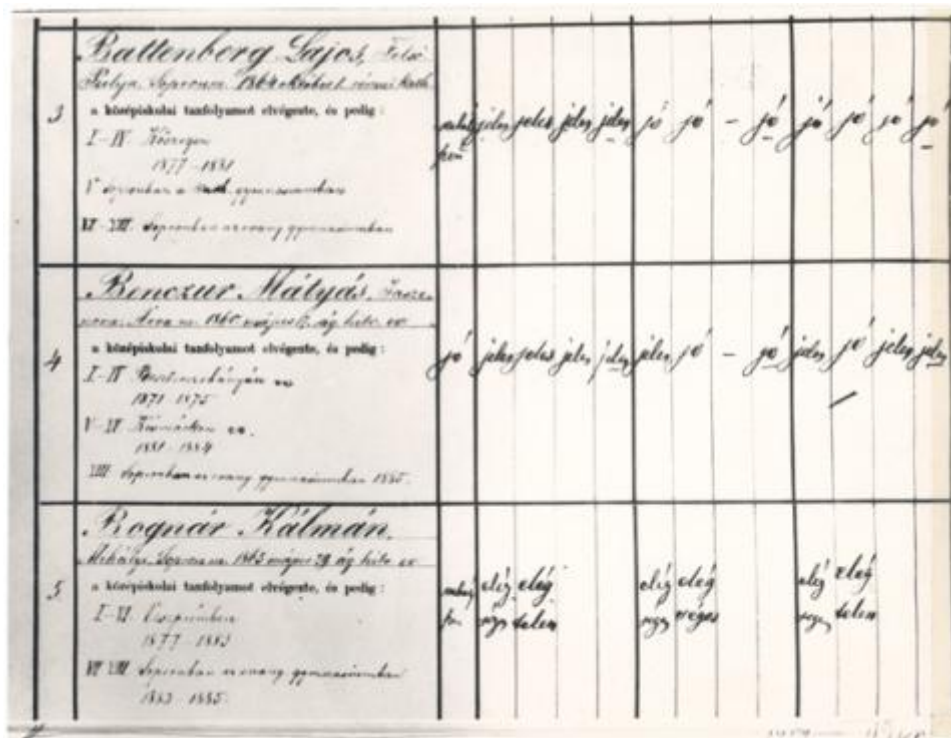 3
Battenberg Lajos, Felső
Pulya. Sopron m. 1864 október 1. római kath.
a középiskolai tanfolyamot elvégezte, és pedig:
I-IV Kőszegen
1877-1881
V Sopronban a kath. gymnasiumban
VI-VIII. Sopronban az evang gymnasiumban
jeles jeles jeles jeles jó jó - jó jó jó jó jó
4
Benczur Mátyás,
Árva m. 1860 május ág. hitv. ev
a középiskolai tanfolyamot elvégezte, és pedig:
I-IV ev
1871-1875
V-VII ev.
1881-1884
VIII. Sopronban az evang gymnasiumban 1885.
jó jeles jeles jeles jeles jeles jó - jó jeles jó jeles jeles
5
Bognár Kálmán,
Mihályi. Sopron m. 1863 május 29 ág. hitv. ev
a középiskolai tanfolyamot elvégezte, és pedig:
I-VI.
1877-1883
VII VIII. Sopronban az evang gymnasiumban
1883-1885.
elég elég elég elég elég elég
séges telen